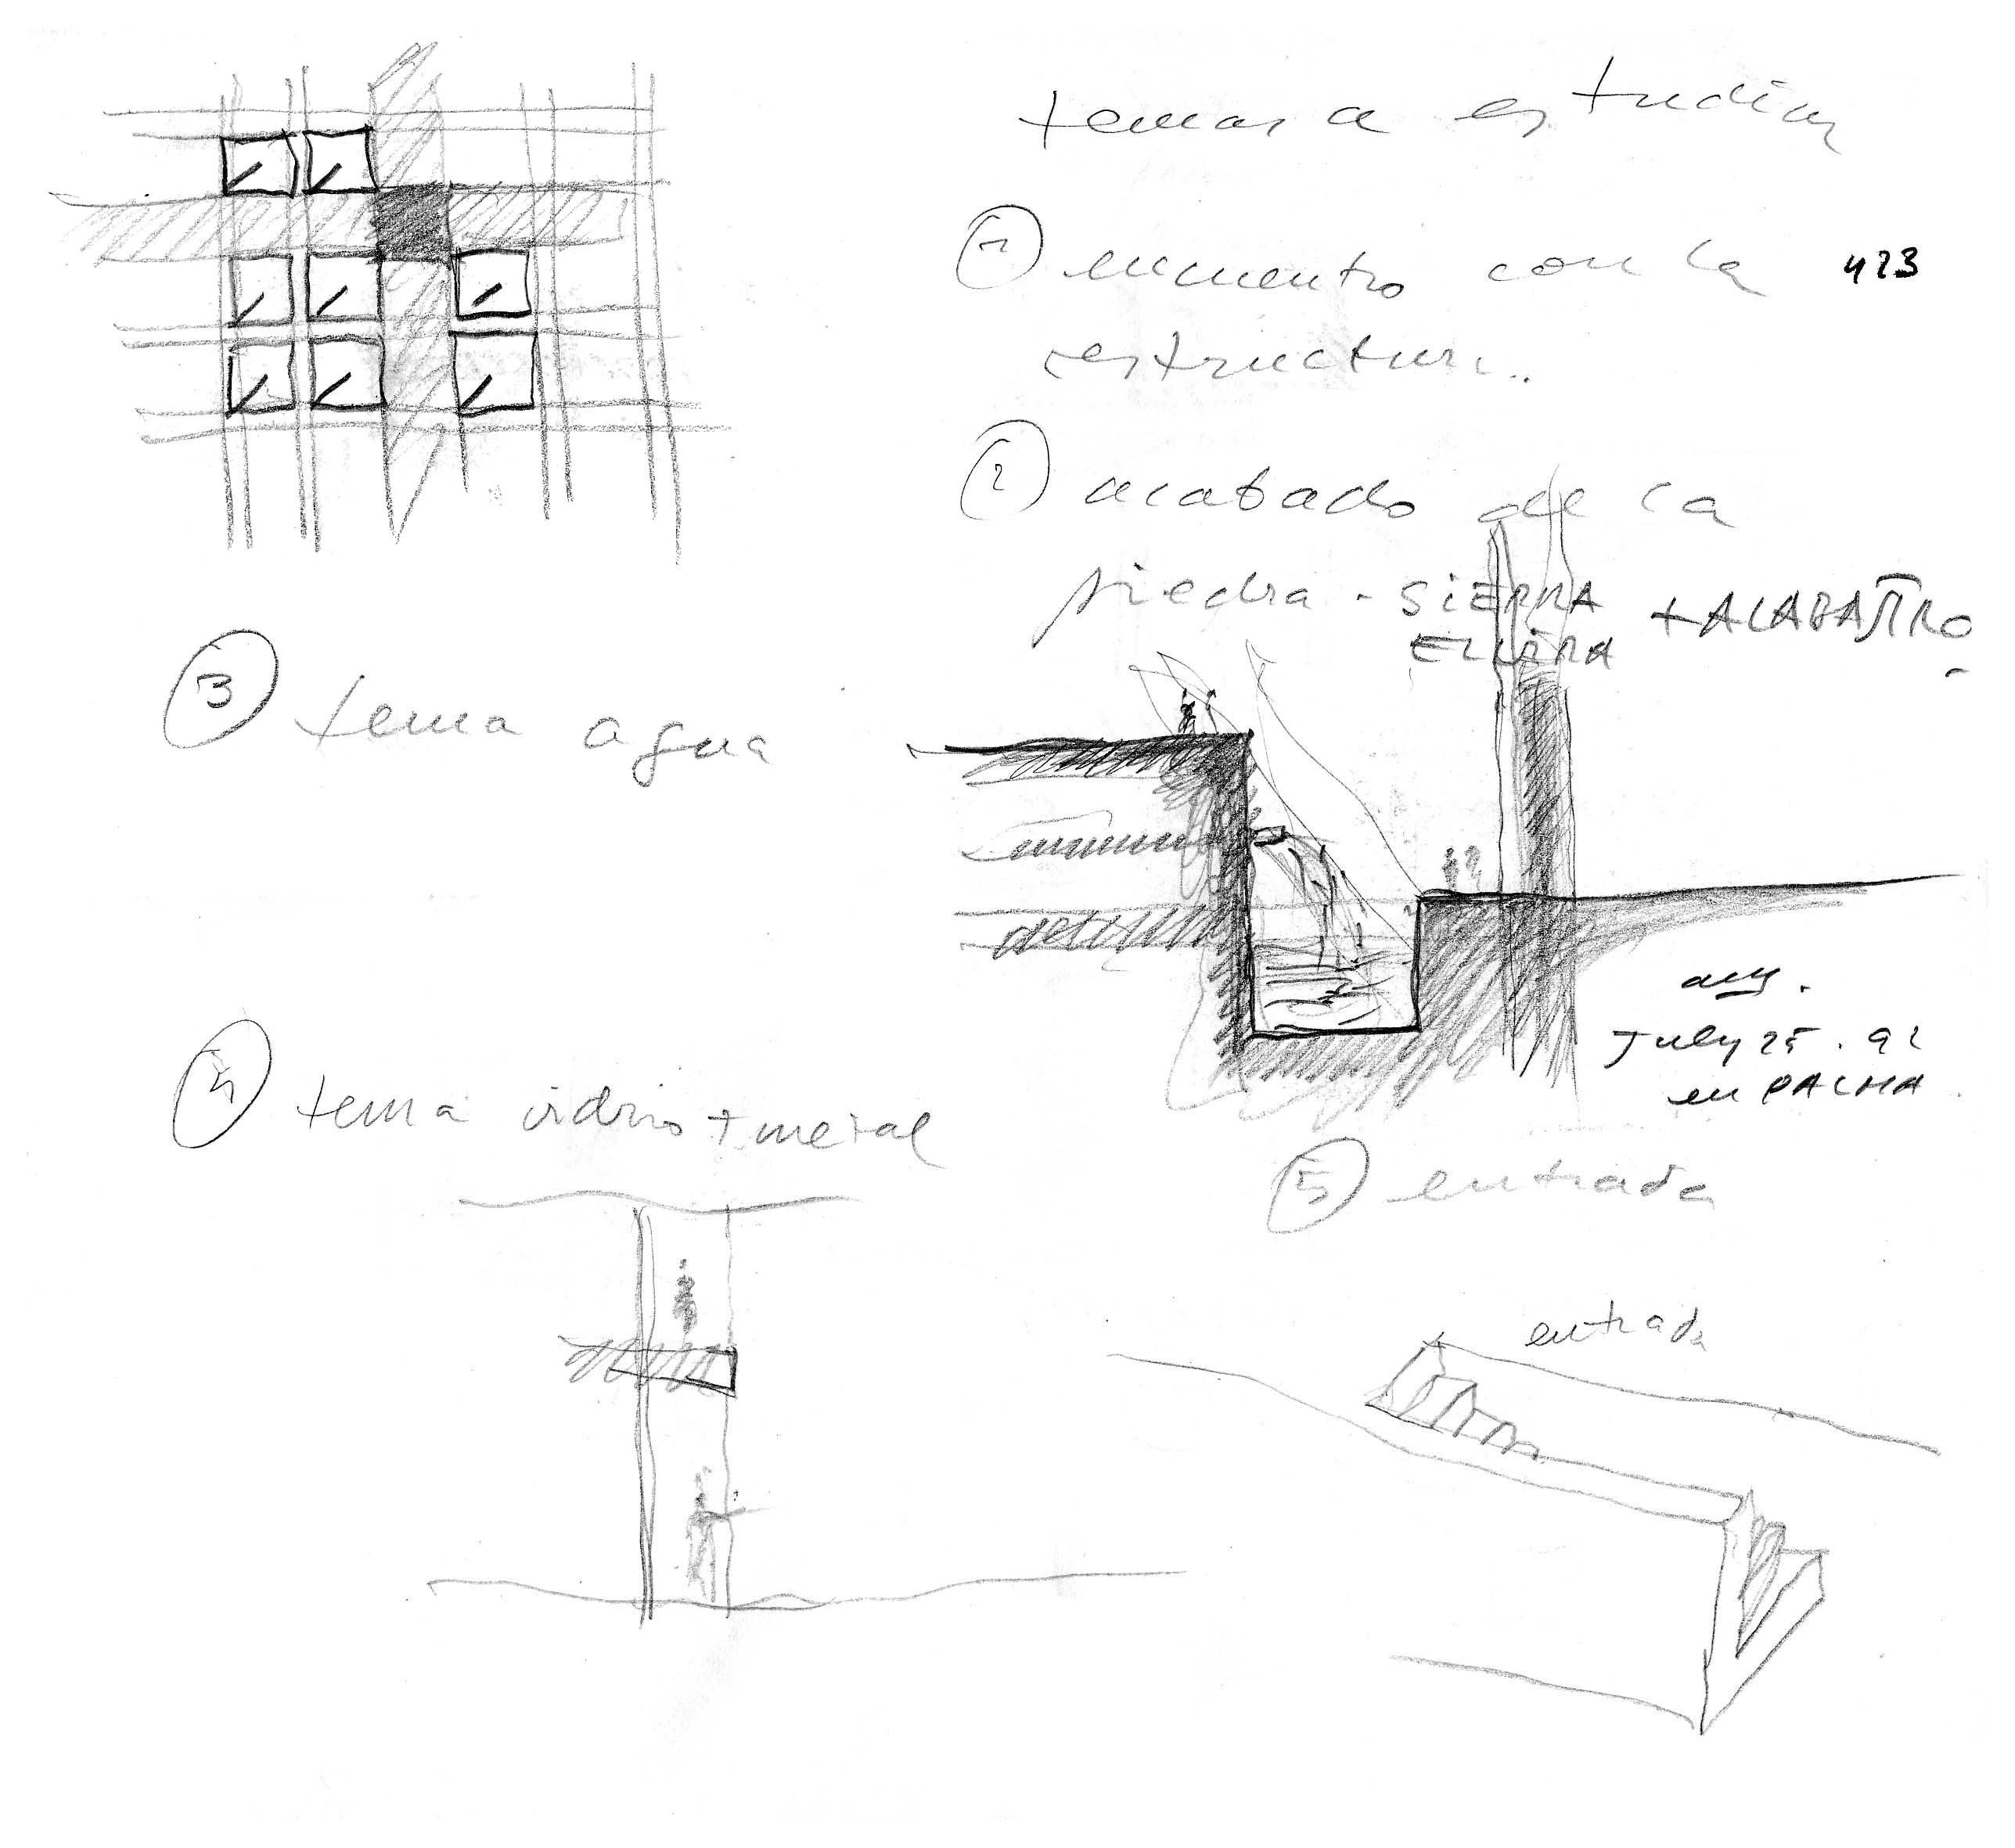 temas a estudiar
1 encuentro con la 423
estructura..
2 acabado de la
piedra - SIERRA + ALABASTRO
ELVIRA
3 tema agua
July 25. 92
en PALMA
4 tema vidrio + metal
5 entrada
entrada